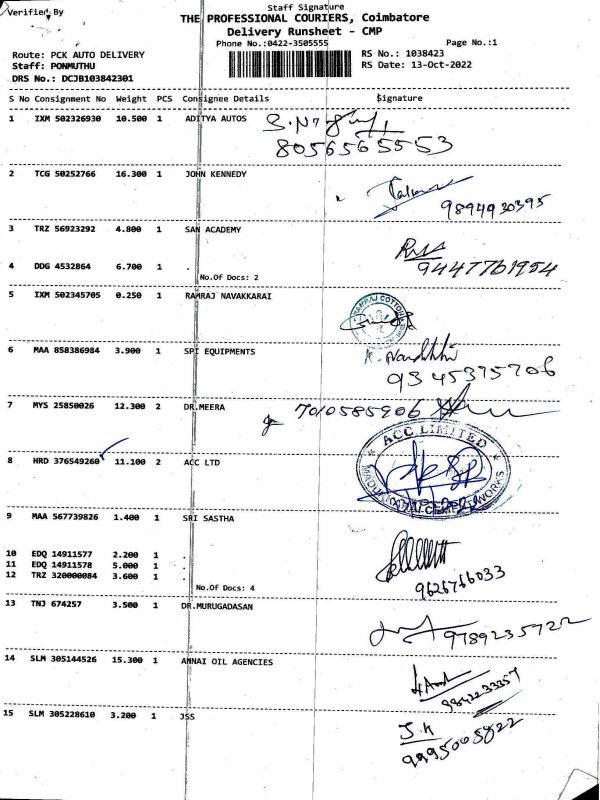 Staff Signature
Verified By
THE PROFESSIONAL COURIERS, Coimbatore
Delivery Runsheet - CMP
Phone No.:0422-3505555
Page No.:1
Route: PCK AUTO DELIVERY
RS No.: 1038423
Staff: PONMUTHU
RS Date: 13-Oct-2022
DRS No.: DCJB103842301
S No Consignment No Weight PCS Consignee Details Signature
1 IXM 502326930 10.500 1 ADITYA AUTOS
8056565553
2 TCG 50252766 16.300 1 JOHN KENNEDY
9894930395
3 TRZ 56923292 4.800 1 SAN ACADEMY
4 DDG 4532864 6.700 1 .
9447761954
No.Of Docs: 2
5 IXM 502345705 0.250 1 RAMRAJ NAVAKKARAI
RAMRAJ COTTON
6 MAA 858386984 3.900 1 SPI EQUIPMENTS
9345375706
7 MYS 25850026 12.300 2 DR.MEERA
7010585906
ACC LIMITED
8 HRD 376549260 11.100 2 ACC LTD
MADUKKARAI CEMENT WORKS
9 MAA 567739826 1.400 1 SRI SASTHA
10 EDQ 14911577 2.200 1 .
11 EDQ 14911578 5.000 1 .
12 TRZ 320000084 3.600 1 .
No.Of Docs: 4
9626766033
13 TNJ 674257 3.500 1 DR.MURUGADASAN
9789235722
14 SLM 305144526 15.300 1 ANNAI OIL AGENCIES
9842233357
15 SLM 305228610 3.200 1 JSS
J.K
9995005822